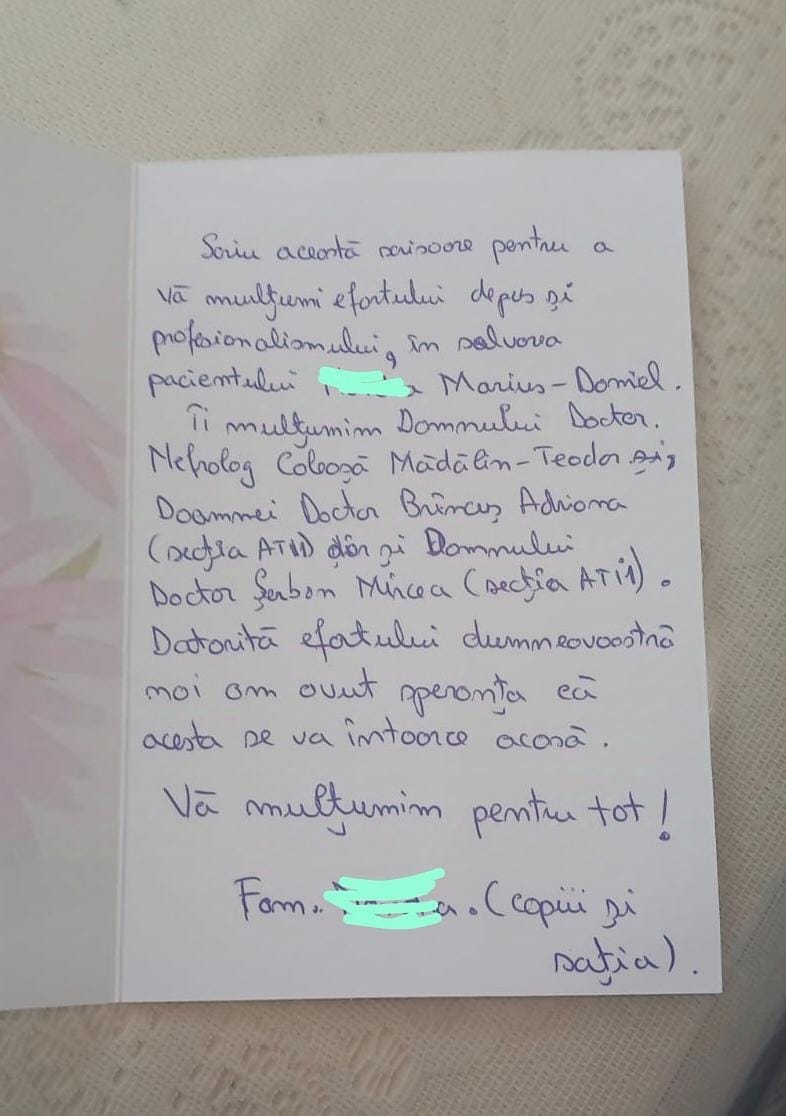 Scriu această scrisoare pentru a
vă mulțumi efortului depus și
profesionalismului, în salvarea
pacientului Marius-Daniel.
Îi mulțumim Domnului Doctor.
Nefrolog Coloază Mădălin-Teodor și,
Doamnei Doctor Brîncuș Adriana
(secția ATI1) și Domnului
Doctor Șerban Mircea (secția ATI1).
Datorită efortului dumneavoastră
noi am avut speranța că
acesta se va întoarce acasă.
Vă mulțumim pentru tot!
Fam. (copiii și
soția).